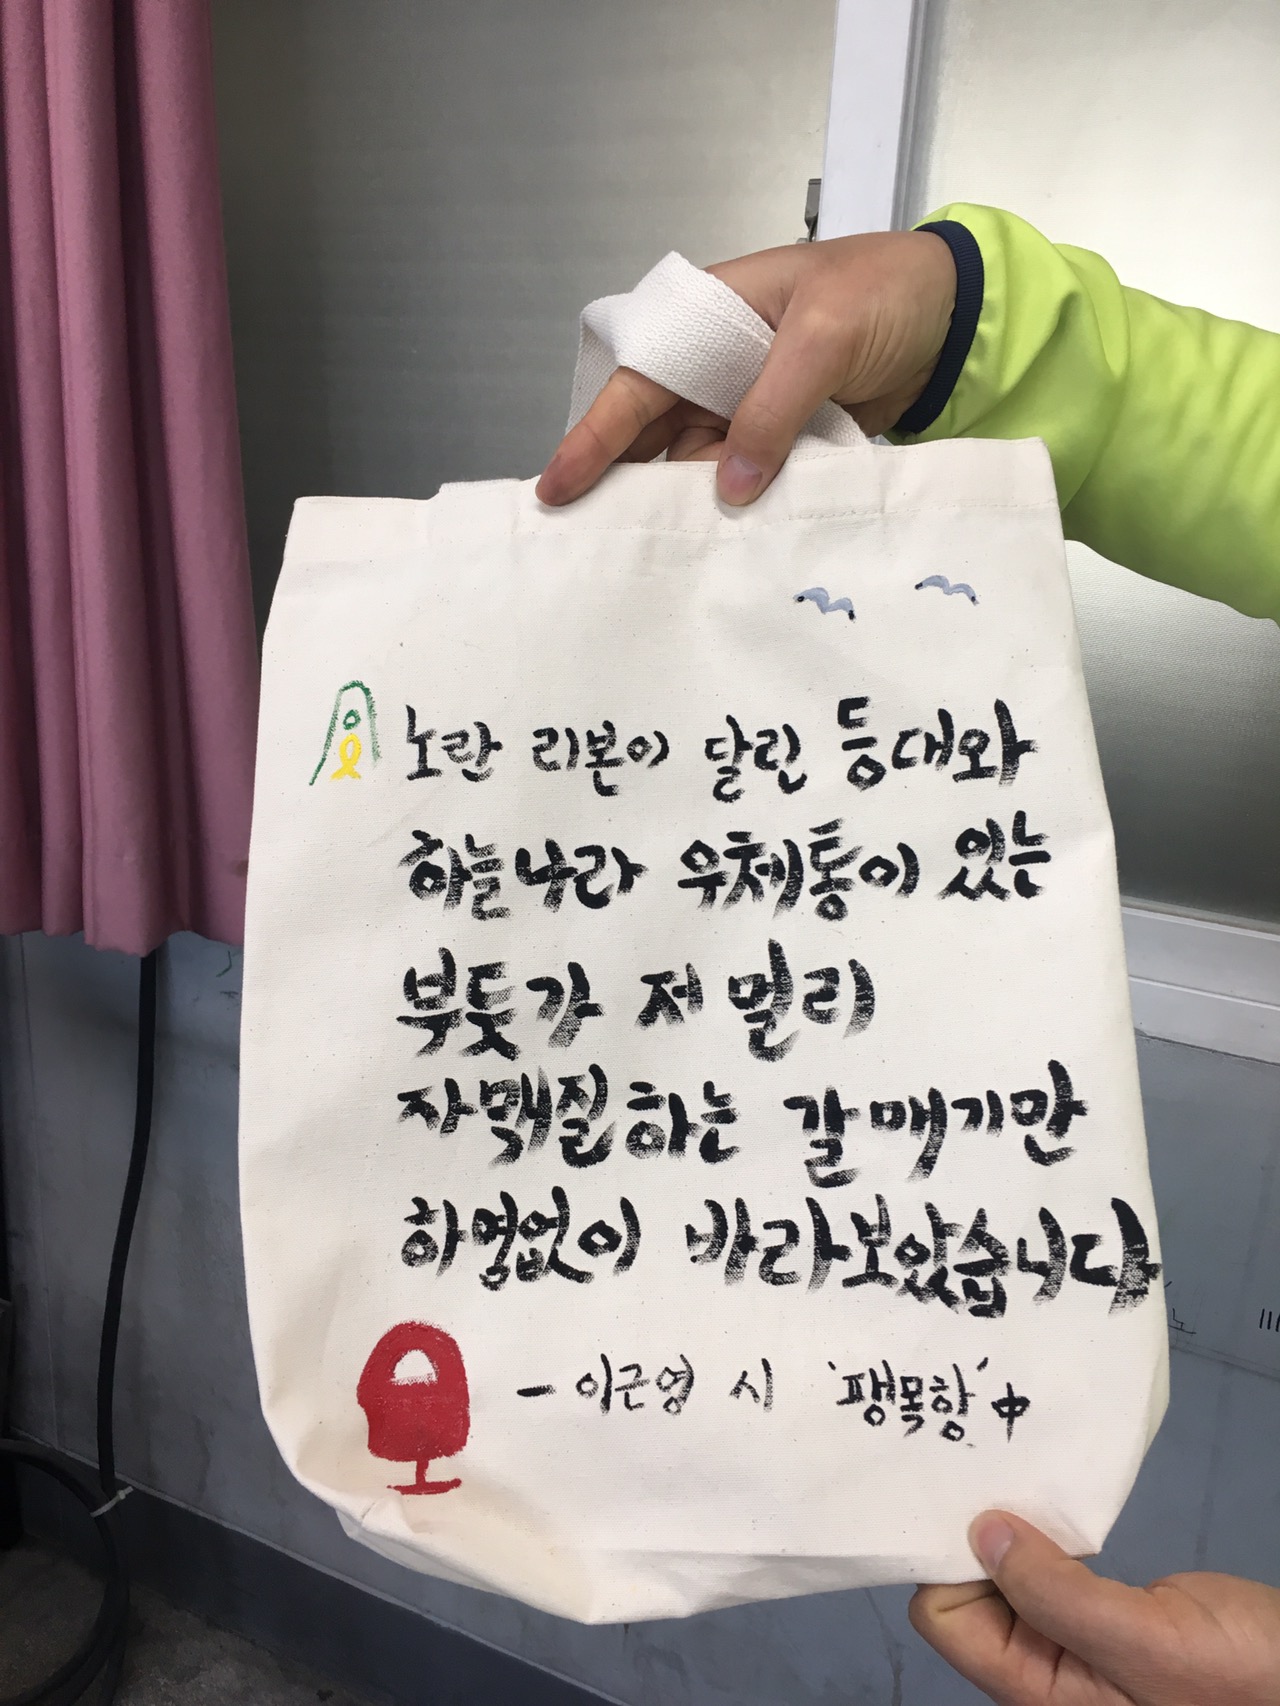 노란 리본이 달린 등대와
하늘나라 우체통이 있는
부둣가 저 멀리
자맥질하는 갈매기만
하염없이 바라보았습니다
- 이근영 시 '팽목항' 中